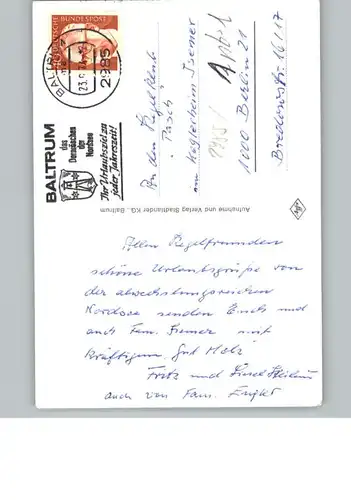 DEUTSCHE BUNDESPOST
BALTRUM
2985
23.
BALTRUM
das
Dornröschen
der
Nordsee
Ihr Urlaubsziel zu
jeder Jahreszeit!
An den Kegelklub
"Pasch"
am Keglerheim Isemer
1000 Berlin 21
Bredowstr. 16/17
Aufnahme und Verlag Stadtlander KG., Baltrum
Allen Kegelfreunden
schöne Urlaubsgrüße von
der abwechslungsreichen
Nordsee senden Euch und
auch Fam. Isemer mit
kräftigem "Gut Holz"
Fritz und
auch von Fam.